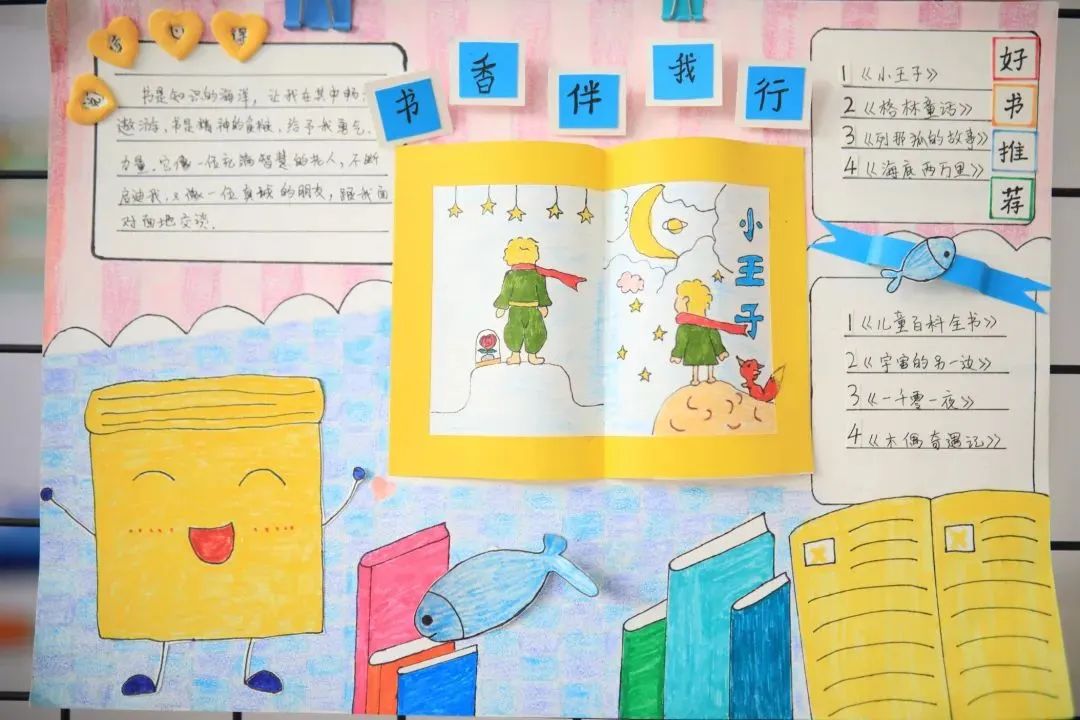 得
书香伴我行
书是知识的海洋，让我在其中畅
遨游，书是精神的食粮，给予我勇气、
力量。它像一位充满智慧的老人，不断
启迪我，又像一位真诚的朋友，跟我面
对面地交谈.
小王子
好书推荐
1《小王子》
2《格林童话》
3《列那狐的故事》
4《海底两万里》
1《儿童百科全书》
2《宇宙的另一边》
3《一千零一夜》
4《木偶奇遇记》